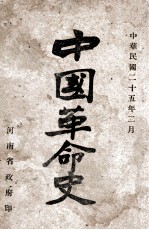 中華民國二十五年二月
中國革命史
河南省政府印